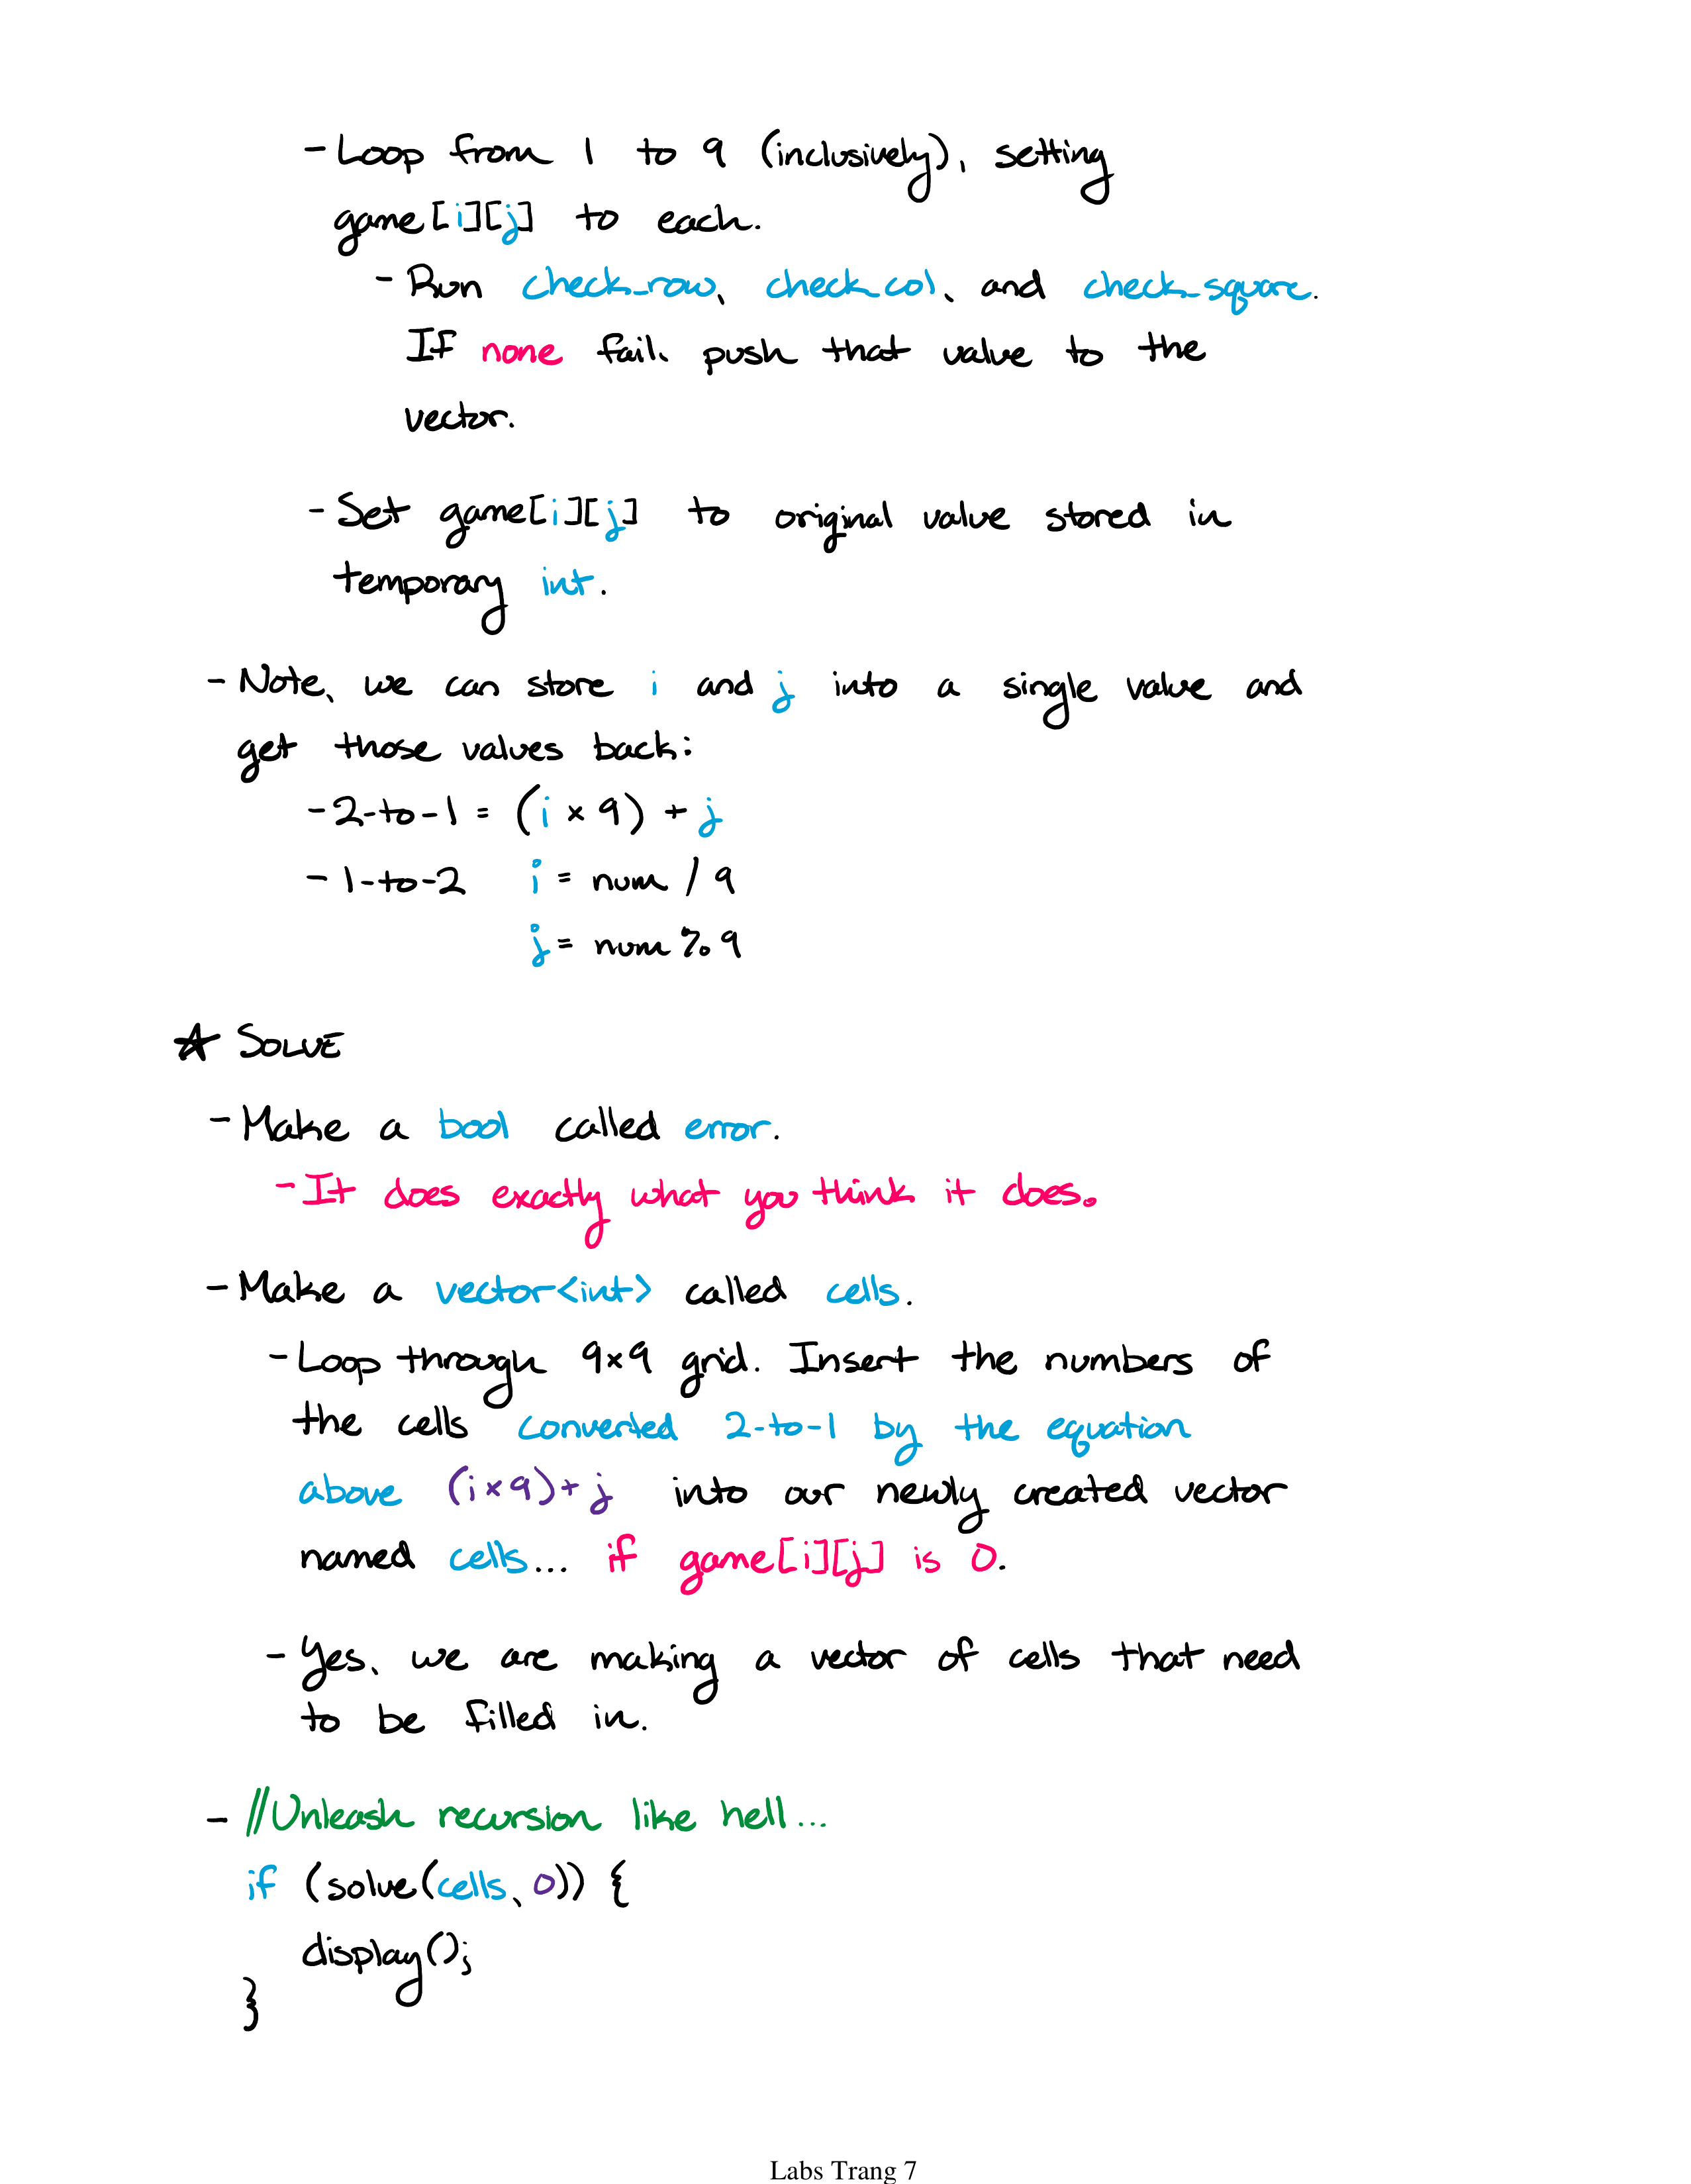 - Loop from 1 to 9 (inclusively), setting
game[i][j] to each.
- Run check_row, check_col, and check_square.
If none fail, push that value to the
vector.
- Set game[i][j] to original value stored in
temporary int.
- Note, we can store i and j into a single value and
get those values back:
- 2-to-1 = (i × 9) + j
- 1-to-2 i = num / 9
j = num % 9
★ SOLVE
- Make a bool called error.
- It does exactly what you think it does.
- Make a vector<int> called cells.
- Loop through 9×9 grid. Insert the numbers of
the cells converted 2-to-1 by the equation
above (i×9)+j into our newly created vector
named cells... if game[i][j] is 0.
- Yes, we are making a vector of cells that need
to be filled in.
- //Unleash recursion like hell...
if (solve(cells, 0)) {
display();
}
Labs Trang 7